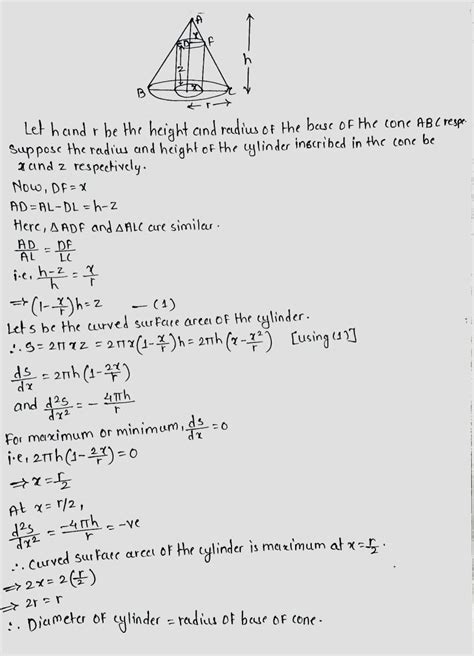 A
x
D F
h
z
B x C
r
Let h and r be the height and radius of the base of the cone ABC respe.
Suppose the radius and height of the cylinder inscribed in the cone be
x and z respectively.
Now, DF = x
AD = AL - DL = h - z
Here, △ADF and △ALC are similar.
AD/AL = DF/LC
i.e, (h-z)/h = x/r
⇒ (1 - x/r)h = z — (1)
Let s be the curved surface area of the cylinder.
∴ S = 2πxz = 2πx(1 - x/r)h = 2πh(x - x²/r) [using (1)]
ds/dx = 2πh(1 - 2x/r)
and d²s/dx² = - 4πh/r
For maximum or minimum, ds/dx = 0
i.e, 2πh(1 - 2x/r) = 0
⇒ x = r/2
At x = r/2,
d²s/dx² = -4πh/r = -ve
∴ Curved surface area of the cylinder is maximum at x = r/2.
⇒ 2x = 2(r/2)
⇒ 2r = r
∴ Diameter of cylinder = radius of base of cone.